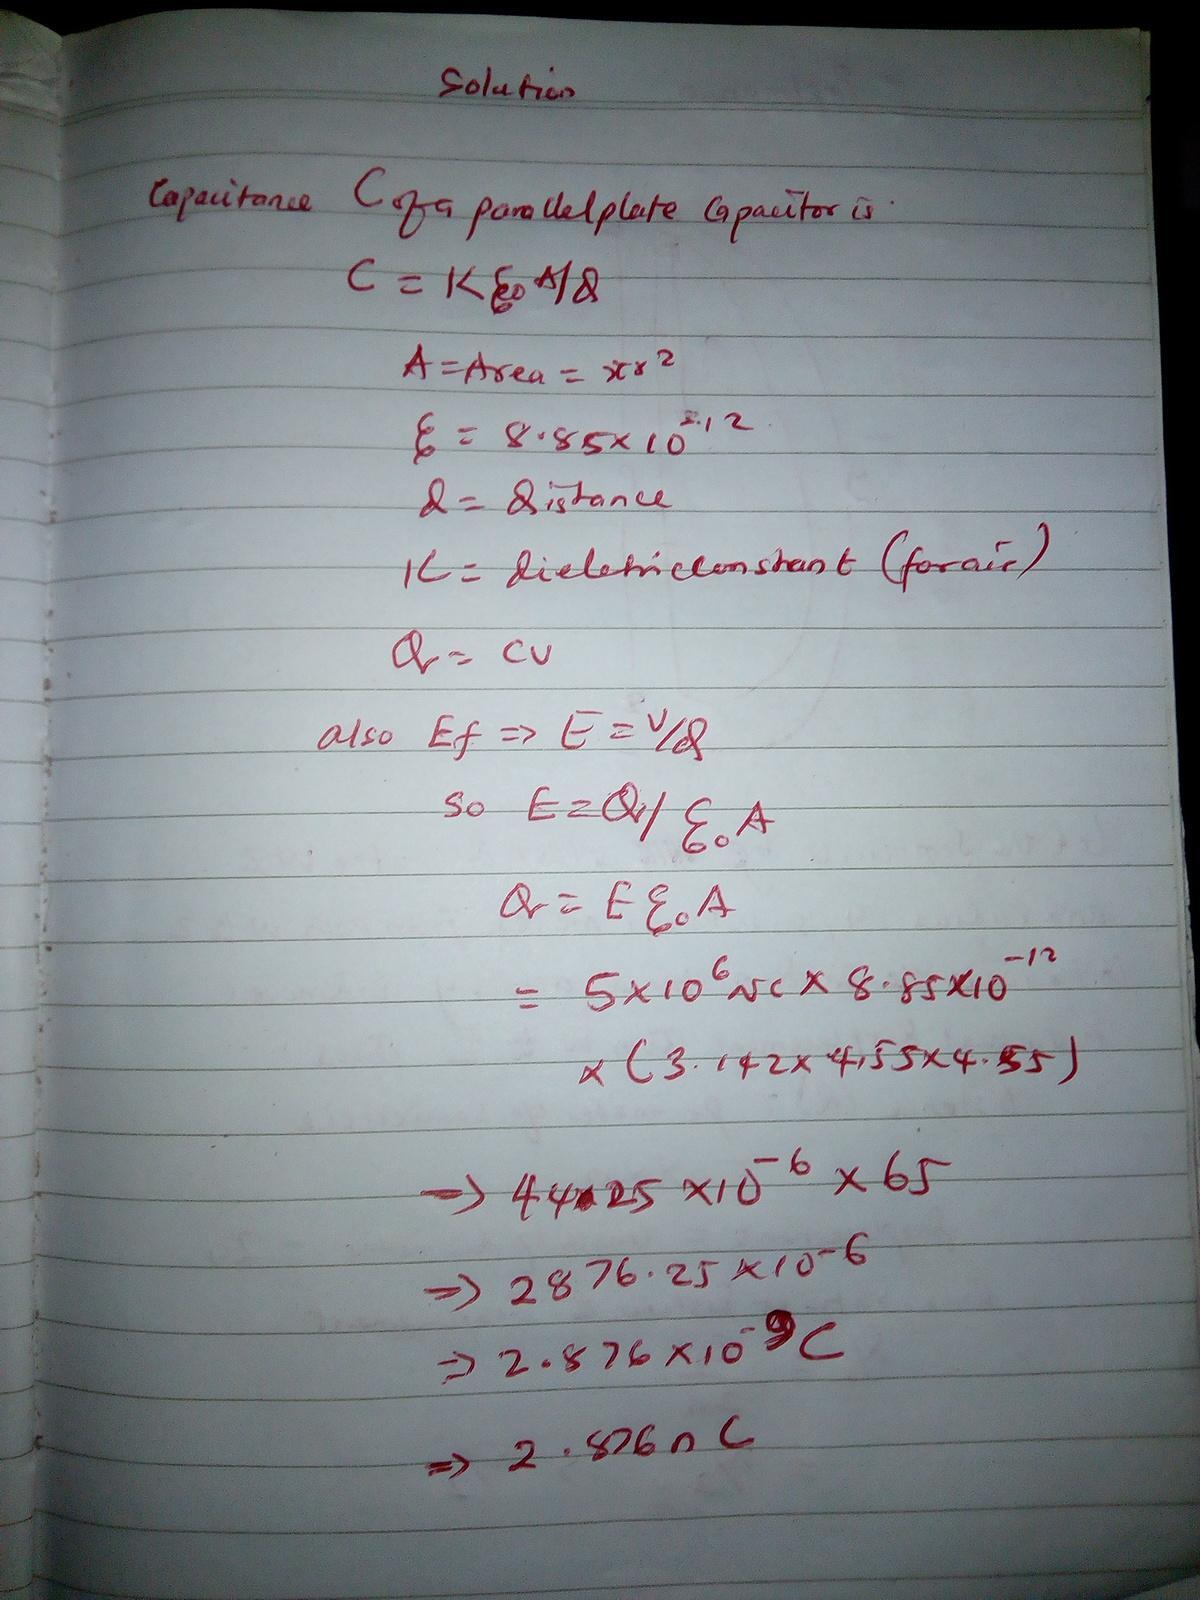 Solution
Capacitance C of a parallel plate Capacitor is
C = K ξ0 A/d
A = Area = πr²
ξ = 8.85×10⁻¹²
d = distance
K = dieletric constant (for air)
Q = CV
also Ef => E = V/d
so E = Q/ξ₀A
Q = E ξ₀ A
= 5×10⁶ N/C × 8.85×10⁻¹²
× (3.142×4.55×4.55)
=> 44.25 ×10⁻⁶ × 65
=> 2876.25 ×10⁻⁶
=> 2.876 ×10⁻⁹ C
=> 2.876 n C